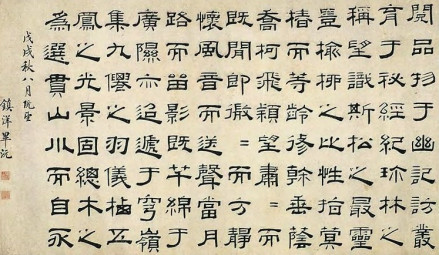 閱品物于幽記訪叢
育于秘經紀林之
稱望識斯松之最靈
豈榆柳之比性指蓂
椿而等齡修幹垂蔭
喬柯飛穎望肅=而
既閒即微=而方靜
懷風音而送聲當月
路而留影既芊綿于
廣隰亦迢遞于穹嶺
集九僊之羽儀棲五
鳳之光景固總木之
為選貫山川而自永
戊戌秋八月既望
鎮洋畢沅